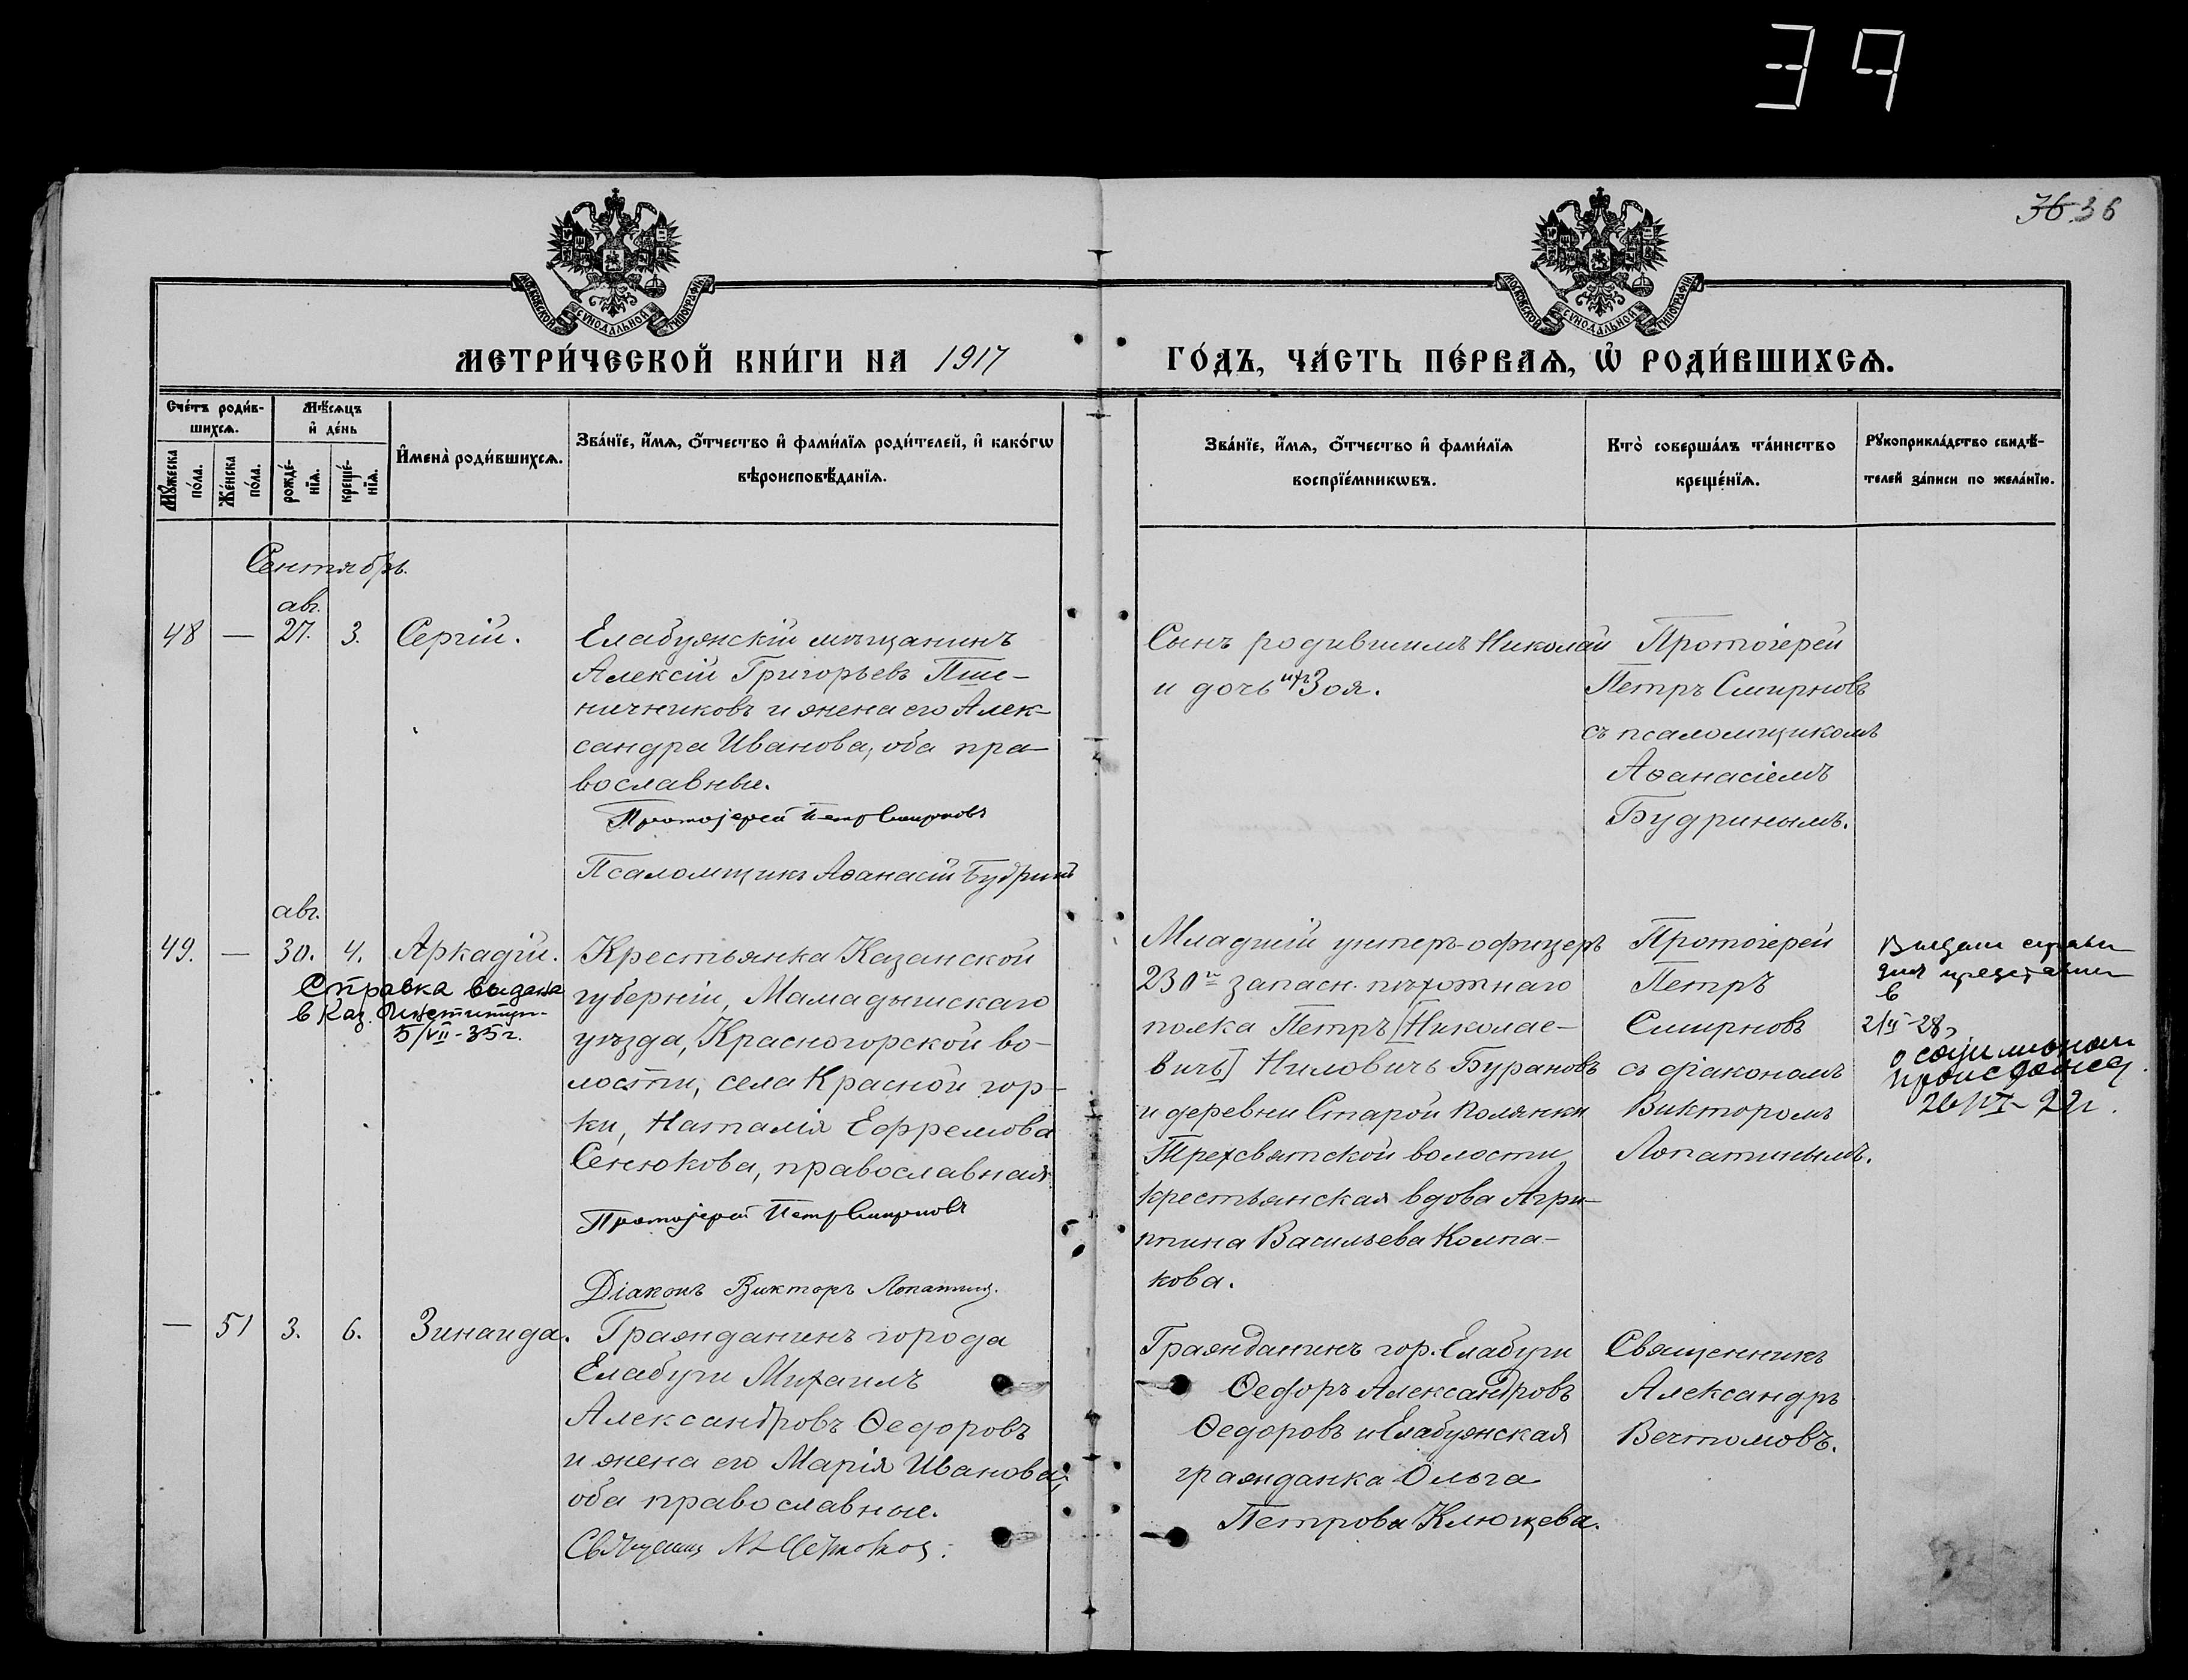 39
36 36
МОСКОВСКОЙ СУНОДАЛЬНОЙ ТИПОГРАФІИ
МОСКОВСКОЙ СУНОДАЛЬНОЙ ТИПОГРАФІИ
МЕТРИ́ЧЕСКОЙ КНИ́ГИ НА 1917
ГО́ДЪ, ЧА́СТЬ ПЕ́РВАѦ, Ѽ РОДИ́ВШИХСѦ.
Сче́тъ роди́в-
шихсѧ.
Мѣ́сѧцъ
и҆ де́нь
Мꙋ́жеска
по́ла.
Же́нска
по́ла.
рожде́-
нїѧ.
креще́-
нїѧ.
И҆мена̀ роди́вшихсѧ.
Зва́нїе, и҆́мѧ, ѻ҆́тчество и҆ фами́лїѧ роди́телей, и҆ како́гѡ
вѣроисповѣ́данїѧ.
Зва́нїе, и҆́мѧ, ѻ҆́тчество и҆ фами́лїѧ
воспрїе́мникѡвъ.
Кто̀ соверша́лъ та́инство
креще́нїѧ.
Рꙋкоприкла́дство свидѣ́-
телей за́писи по жела́нїю.
Сентябрь.
авг.
48 — 27. 3. Сергій.
Елабужскій мѣщанинъ
Алексій Григорьевъ Пше-
ничниковъ и жена его Алек-
сандра Иванова, оба пра-
вославные.
Протоіерей Петр Смирновъ
Псаломщикъ Аѳанасій Будринъ
Сынъ родившихъ Николай
и дочь ихъ Зоя.
Протоіерей
Петръ Смирновъ
съ псаломщикомъ
Аѳанасіемъ
Будринымъ.
авг.
49. — 30. 4. Аркадій.
Справка выдана
в Каз.
5/VII-35 г.
Крестьянка Казанской
губерніи, Мамадышскаго
уѣзда, Красногорской во-
лости, села Красной гор-
ки, Наталія Ефремова
Сенюкова, православная
Протоіерей Петр Смирновъ
Діаконъ Викторъ Лопатинъ.
Младшій унтеръ-офицеръ
230го запасн. пѣхотнаго
полка Петръ [Николае-
вичъ] Ниловичъ Бурановъ
и деревни Старой Полянки
Трехсвятской волости
крестьянская вдова Агри-
ппина Васильева Колпа-
кова.
Протоіерей
Петръ
Смирновъ
съ діакономъ
Викторомъ
Лопатинымъ.
в
28
о
— 51 3. 6. Зинаида.
Гражданинъ города
Елабуги Михаилъ
Александровъ Ѳедоровъ
и жена его Марія Иванова,
оба православные.
Гражданинъ гор. Елабуги
Ѳедоръ Александровъ
Ѳедоровъ и Елабужская
гражданка Ольга
Петрова Клющева.
Священникъ
Александръ
Вечтомовъ.